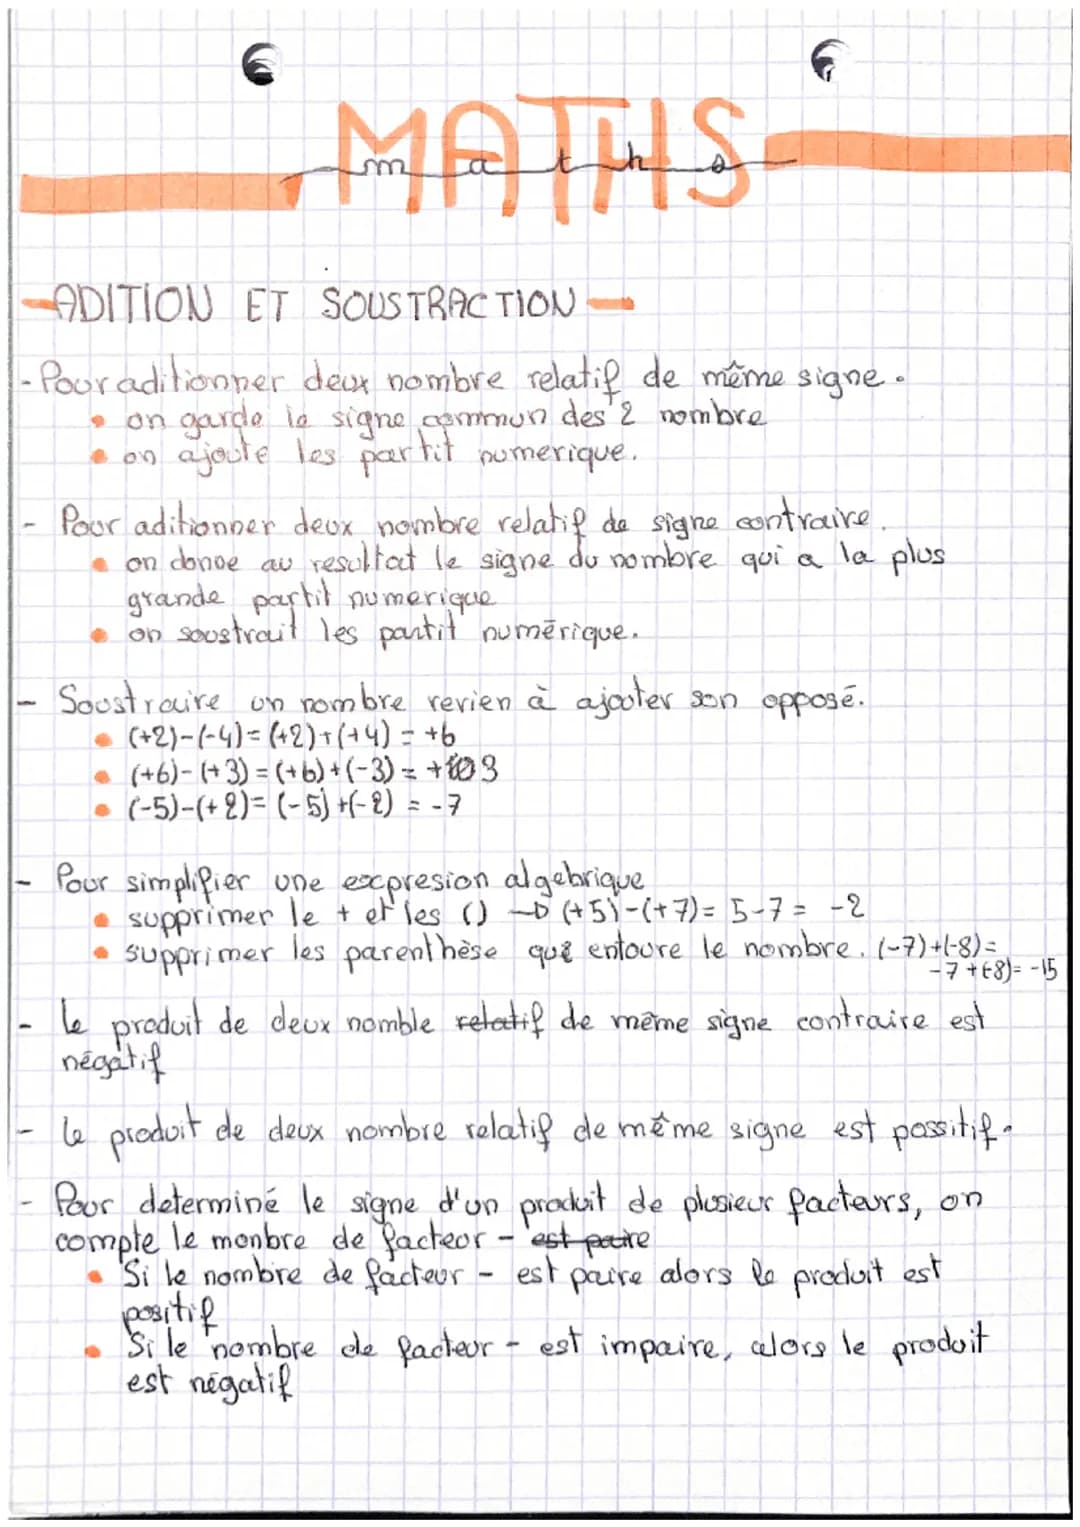 MATHS
maths
ADITION ET SOUSTRACTION
- Pour aditionner deux nombre relatif de même signe.
• on garde le signe commun des 2 nombre
• on ajoute les partit numerique.
- Pour aditionner deux nombre relatif de signe contraire.
• on donne au resultat le signe du nombre qui a la plus
grande partit numerique
• on soustrait les partit numérique.
- Soustraire un nombre revien à ajouter son opposé.
• (+2)-(-4)=(+2)+(+4) = +6
• (+6)-(+3)=(+6)+(-3) = +3
• (-5)-(+2)=(-5)+(-2) = -7
- Pour simplifier une expresion algebrique
• supprimer le + et les () → (+5)-(+7)= 5-7 = -2
• supprimer les parenthèse que entoure le nombre. (-7)+(-8)=
-7+(-8)= -15
- le produit de deux nomble relatif de même signe contraire est
négatif
- le produit de deux nombre relatif de même signe est possitif.
- Pour determiné le signe d'un produit de plusieur facteurs, on
compte le monbre de facteur - est paire
• Si le nombre de facteur - est paire alors le produit est
positif
• Si le nombre de facteur - est impaire, alors le produit
est négatif